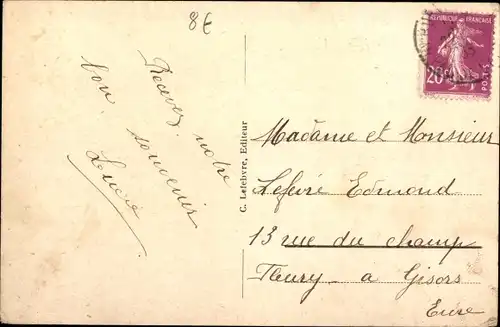 8€
Recevez notre
bon souvenir
Lucie
C. Lefebvre, Editeur
REPUBLIQUE FRANCAISE
20c
POSTES
Madame et Monsieur
Lefevre Edmond
13 rue du champ
Fleury - a Gisors
Eure